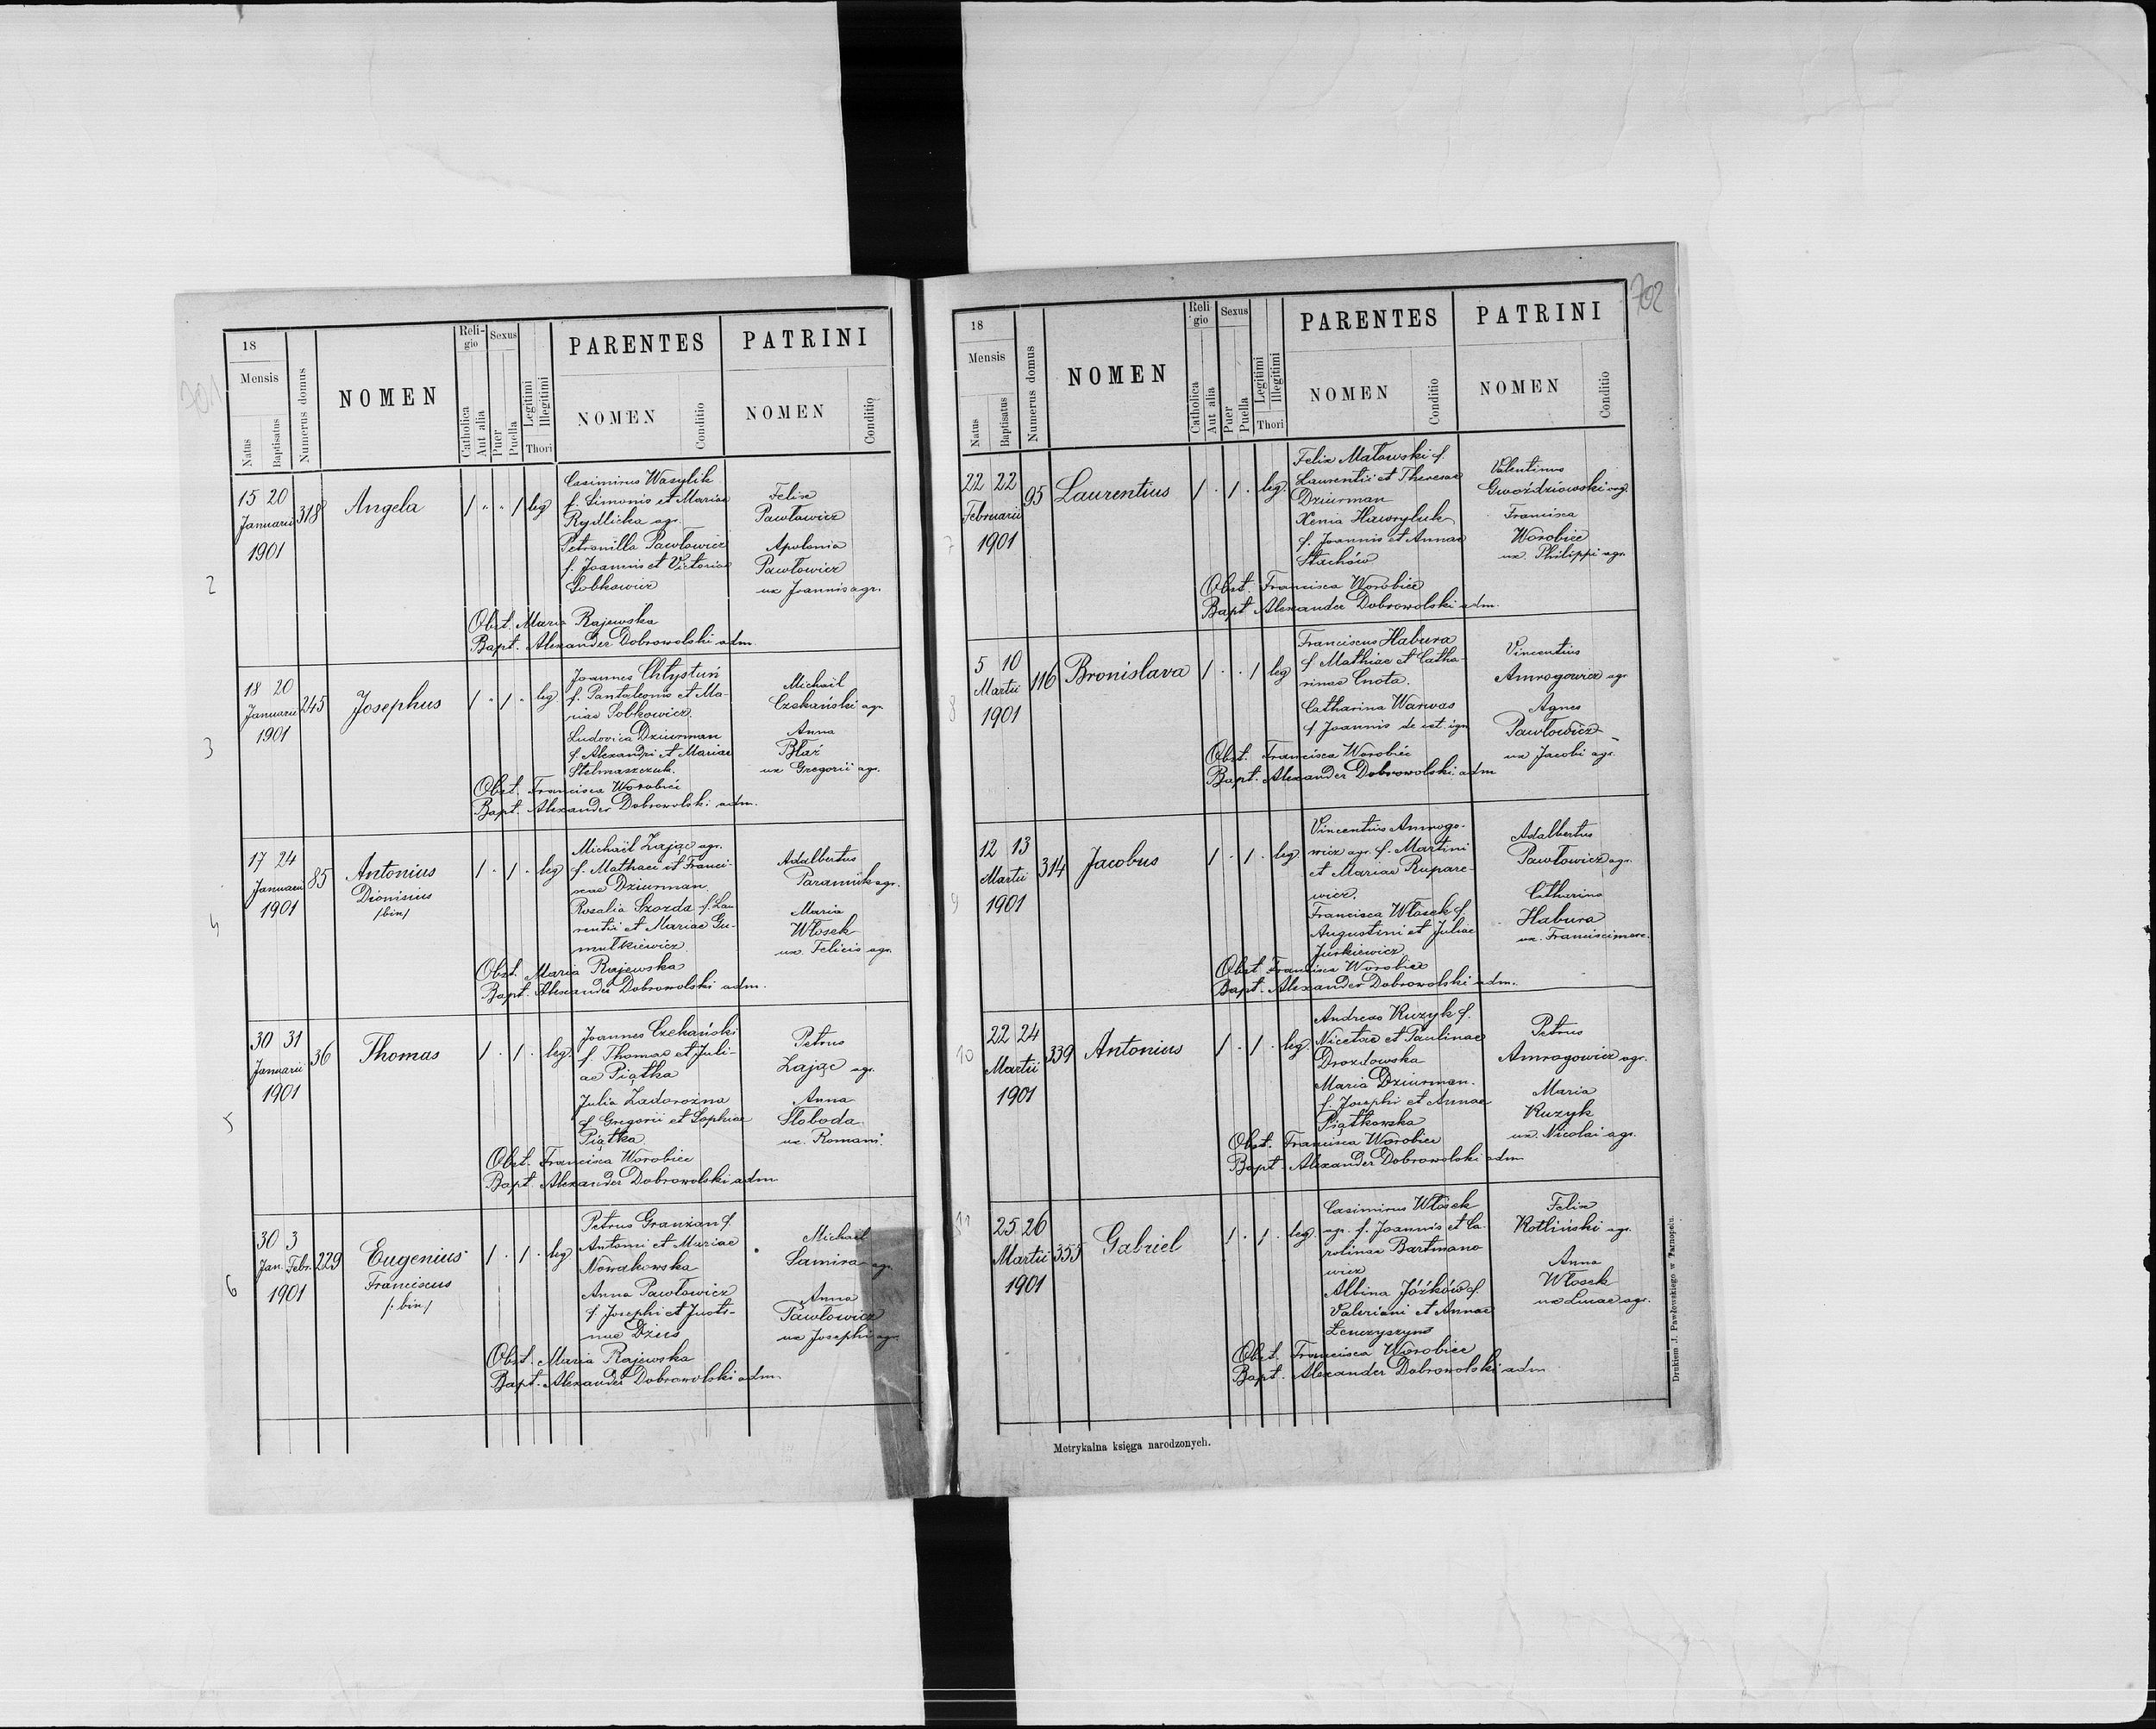 701
18
Mensis
Natus
Baptisatus
Numerus domus
NOMEN
Reli-
gio
Catholica
Aut alia
Sexus
Puer
Puella
Legitimi
Illegitimi
Thori
PARENTES
NOMEN
Conditio
PATRINI
NOMEN
Conditio
2
15 20
Januarii
1901
318
Angela
1 " " 1 leg
Casimirus Wasylik
f. Simonis et Mariae
Rydlicka agr.
Petronilla Pawłowicz
f. Joannis et Victoriae
Sobkowicz
Felix
Pawłowicz
Apolonia
Pawłowicz
ux Joannis agr.
Obst. Maria Rajewska
Bapt. Alexander Dobrowolski adm
3
18 20
Januarii
1901
245
Josephus
1 " 1 " leg.
Joannes Chłystuń
f. Pantaleonis et Ma-
riae Sobkowicz.
Ludovica Dziurman
f. Alexandri et Mariae
Stelmaszczuk.
Michail
Czekański agr
Anna
Błaź
ux Gregorii agr.
Obst. Francisca Worobiec
Bapt. Alexander Dobrowolski adm.
4
17 24
Januarii
1901
85
Antonius
Dionisius
/bin/
1 . 1 . leg
Michaël Zając agr.
f. Mathaei et Franci-
scae Dziurman
Rosalia Szozda f. Lau
rentii et Mariae Gu-
mułkiewicz
Adalbertus
Paraniuk agr.
Maria
Włosek
ux. Felicis agr.
Obst. Maria Rajewska
Bapt. Alexander Dobrowolski adm.
5
30 31
Januarii
1901
36
Thomas
1 . 1 . leg.
Joannes Czekański
f. Thomae et Juli-
ae Piątka
Julia Zadorozna
f. Gregorii et Sophiae
Piątka
Petrus
Zając agr.
Anna
Słoboda
ux. Romani.
Obst. Francisca Worobiec
Bapt. Alexander Dobrowolski adm
6
30 3
Jan. Febr.
1901
229
Eugenius
Franciscus
/: bin/
1 . 1 . leg
Petrus Granżan f.
Antoni et Mariae
Nowakowska
Anna Pawłowicz
f. Josephi et Justi-
nae Dzius
Michael
Samira agr.
Anna
Pawłowicz
ux Josephi agr.
Obst. Maria Rajewska
Bapt. Alexander Dobrowolski adm
702
18
Mensis
Natus
Baptisatus
Numerus domus
NOMEN
Reli
gio
Catholica
Aut alia
Sexus
Puer
Puella
Legitimi
Illegitimi
Thori
PARENTES
NOMEN
Conditio
PATRINI
NOMEN
Conditio
7
22 22
Februarii
1901
95
Laurentius
1 . 1 . leg.
Felix Małowski f.
Laurentii et Theresae
Dziurman
Xenia Hawryluk
f. Joannis et Annae
Stachów
Valentinus
Gwoździowski org.
Francisca
Worobiec
ux. Philippi agr.
Obst. Francisca Worobiec
Bapt Alexander Dobrowolski adm.
8
5 10
Martii
1901
116
Bronislava
1 . . 1 leg
Franciscus Habura
f Mathiae et Catha-
rinae Cnota.
Catharina Warwas
f Joannis de cet. ign
Vincentius
Amrogowicz agr
Agnes
Pawłowicz
ux Jacobi agr.
Obst. Francisca Worobiec
Bapt. Alexander Dobrowolski adm
9
12 13
Martii
1901
314
Jacobus
1 . 1 . leg.
Vincentius Amrogo-
wicz agr. f. Martini
et Mariae Rupare-
wicz.
Francisca Włosek f.
Augustini et Juliae
Jurkiewicz
Adalbertus
Pawłowicz agr.
Catharina
Habura
ux. Francisci merc.
Obst Francisca Worobiec
Bapt. Alexander Dobrowolski adm.
10
22 24
Martii
1901
339
Antonius
1 . 1 . leg.
Andreas Kuzyk f.
Nicetae et Paulinae
Drozdowska
Maria Dziurman.
f. Josephi et Annae
Piątkowska
Petrus
Amrogowicz agr.
Maria
Kuzyk
ux. Nicolai agr.
Obst. Francisca Worobiec
Bapt. Alexander Dobrowolski adm
11
25 26
Martii
1901
355
Gabriel
1 . 1 . leg.
Casimirus Włosek
agr. f. Joannis et Ca-
rolinae Bartmano
wicz
Albina Jóżków f.
Valeriani et Annae
Lenczyszyn
Felix
Kotliński agr.
Anna
Włosek
ux Lucae agr.
Obst. Francisca Worobiec
Bapt. Alexander Dobrowolski adm
Metrykalna księga narodzonych.
Drukiem J. Pawłowskiego w Tarnopolu.